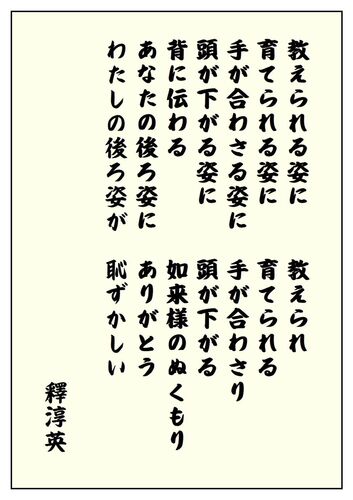 教えられる姿に　教えられ
育てられる姿に　育てられる
手が合わさる姿に　手が合わさり
頭が下がる姿に　頭が下がる
背に伝わる　如来様のぬくもり
あなたの後ろ姿に　ありがとう
わたしの後ろ姿が　恥ずかしい
釋淳英